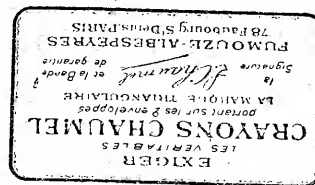 EXIGER
LES VÉRITABLES
CRAYONS CHAUMEL
portant sur les 2 enveloppes
LA MARQUE TRIANGULAIRE
la Signature Chaumel et la Bande de garantie
FUMOUZE-ALBESPEYRES
78 Faubourg St Denis, PARIS